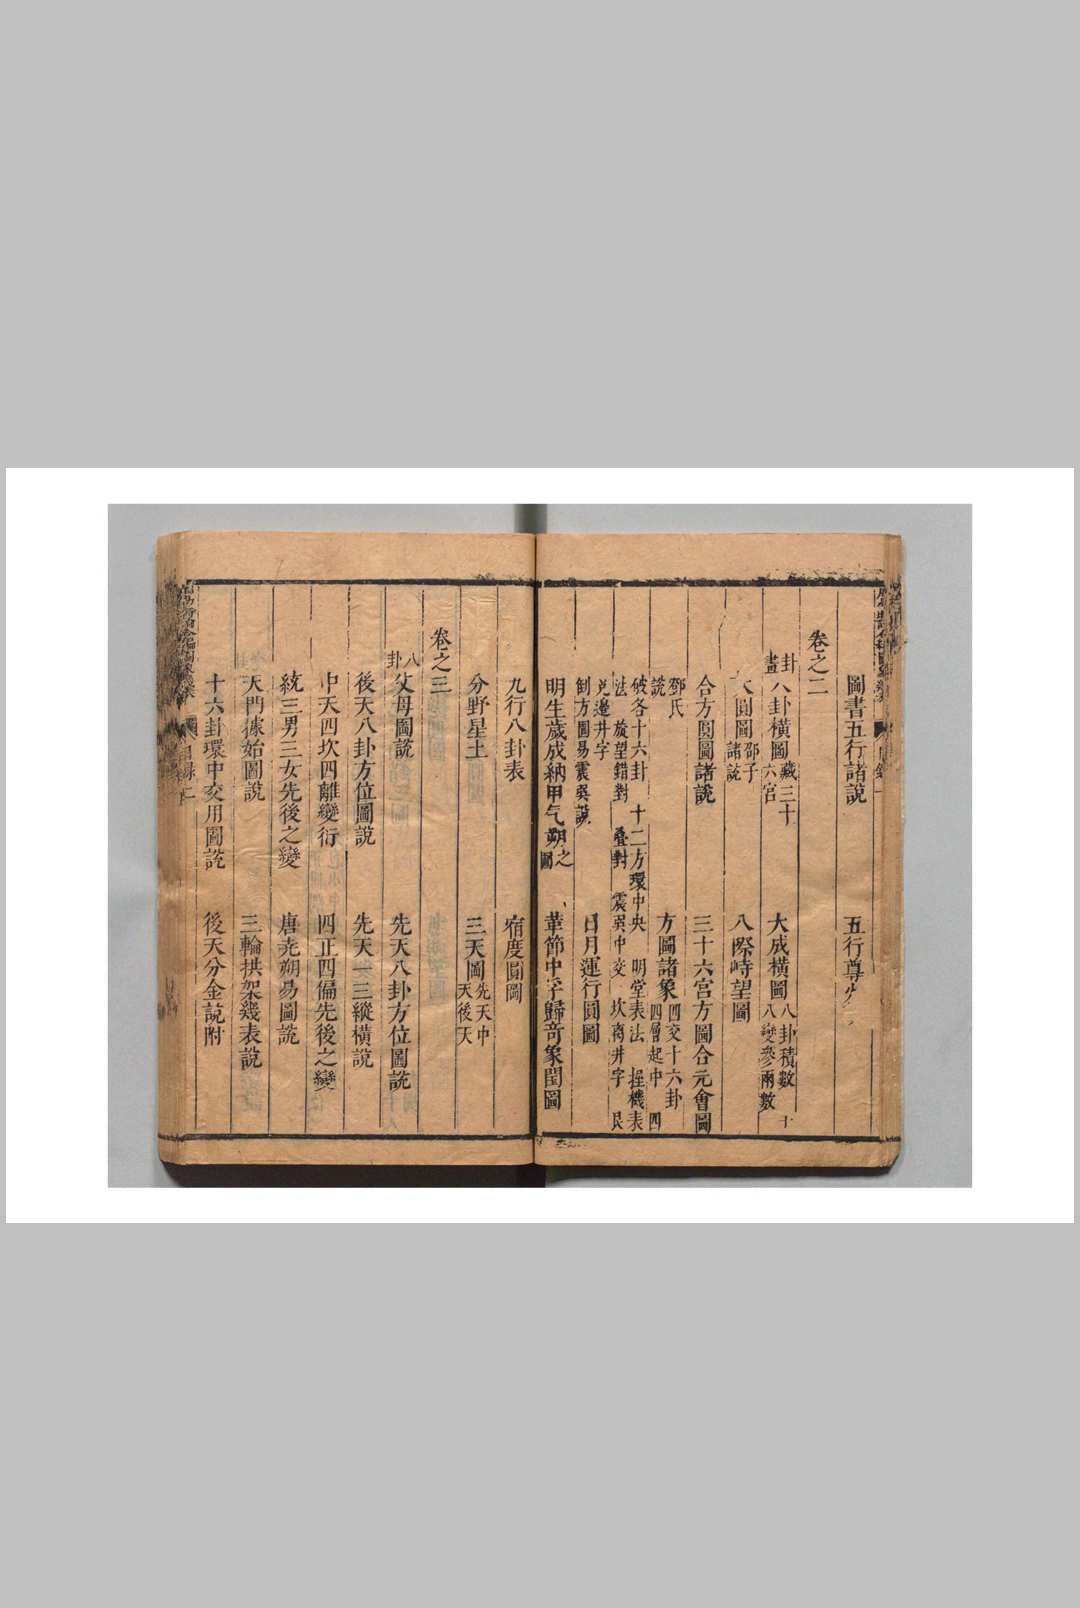 圖書五行諸說　五行尊
卷之二
卦畫
八卦橫圖 藏三十六宮　大成橫圖 八卦積數 八變參兩數
圓圖 邵子諸說　八際峙望圖
合方圓圖諸說　三十六宮方圖合元會圖
鄧氏說　方圖諸象 四交十六卦 四層起中 四
破各十六卦　十二方環中央　明堂表法　握機表
法　旋望錯對　疊對　震巽中交　坎离井字　艮
兌邊井字
倒方圖易震巽說　日月運行圓圖
明生歲成納甲气朔之圖　華節中孚歸奇象閏圖
九行八卦表　宿度圓圖
分野星土　三天圖 先天中天後天
卷之三
八卦
父母圖說　先天八卦方位圖說
後天八卦方位圖說　先天一三縱橫說
中天四坎四離變衍　四正四偏先後之變
統三男三女先後之變　唐尭朔易圖說
天門據始圖說　三輪拱架幾表說
十六卦環中交用圖說　後天分金說附